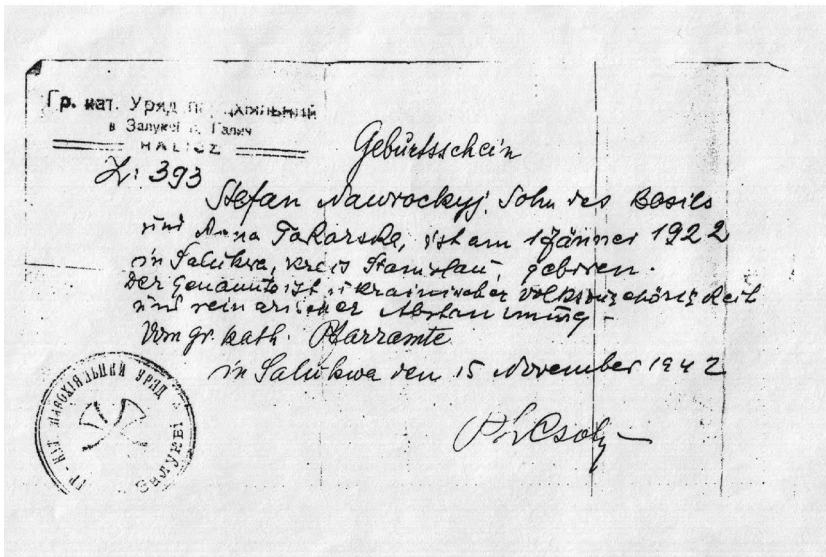 Гр. кат. Уряд парохіяльний
в Залукві п. Галич
HALICZ
Z: 393
Geburtsschein
Stefan Nawrockyj, Sohn des Basils
und Anna Tokarska, ist am 1 Jänner 1922
in Salukwa, Kreis Stanislau, geboren.
Der Genannte ist ukrainischer Volkszugehörigkeit
und rein arischer Abstammung.
Vom gr. kath. Pfarramte
in Salukwa den 15 November 1942
ГР КАТ ПАРОХІЯЛЬНИЙ УРЯД В ЗАЛУКВІ